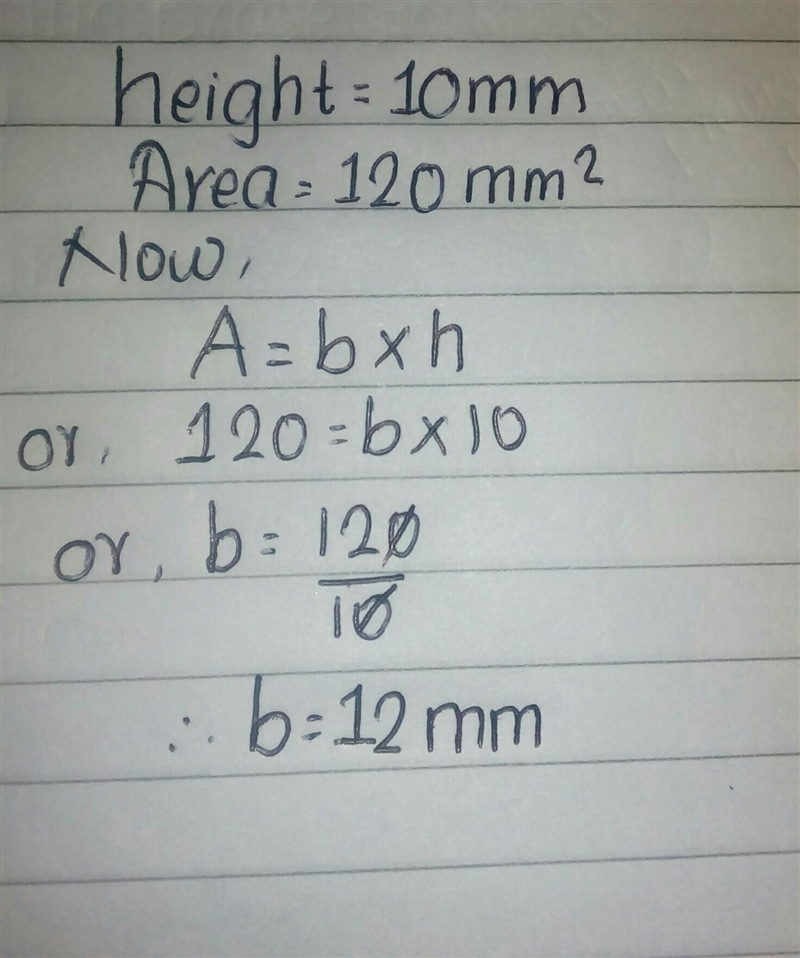 height = 10mm
Area = 120 mm²
Now,
A = b × h
or, 120 = b × 10
or, b = 120
10
∴ b = 12 mm